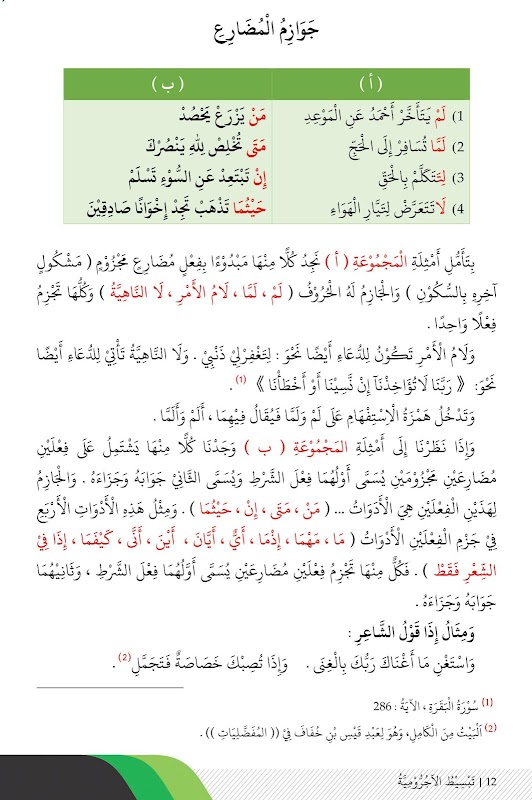 جَوَازِمُ الْمُضَارِعِ
( أ ) ( ب )
1) لَمْ يَتَأَخَّرْ أَحْمَدُ عَنِ الْمَوْعِدِ مَنْ يَزْرَعْ يَحْصُدْ
2) لَمَّا تُسَافِرْ إِلَى الْحَجِّ مَتَى تُخْلِصْ لِلّٰهِ يَنْصُرْكَ
3) لِتَتَكَلَّمْ بِالْحَقِّ إِنْ تَبْتَعِدْ عَنِ السُّوْءِ تَسْلَمْ
4) لَا تَتَعَرَّضْ لِتَيَّارِ الْهَوَاءِ حَيْثُمَا تَذْهَبْ تَجِدْ إِخْوَانًا صَادِقِيْنَ
بِتَأَمُّلِ أَمْثِلَةِ الْمَجْمُوْعَةِ ( أ ) نَجِدُ كُلًّا مِنْهَا مَبْدُوْءًا بِفِعْلٍ مُضَارِعٍ مَجْزُوْمٍ ( مَشْكُولٍ
آخِرِهِ بِالسُّكُوْنِ ) وَالْجَازِمُ لَهُ الْحُرُوْفُ ( لَمْ ، لَمَّا ، لَامُ الْأَمْرِ ، لَا النَّاهِيَةُ ) وَكُلُّهَا تَجْزِمُ
فِعْلًا وَاحِدًا .
وَلَامُ الْأَمْرِ تَكُوْنُ لِلدُّعَاءِ أَيْضًا نَحْوَ : لِتَغْفِرْلِيْ ذَنْبِيْ . وَلَا النَّاهِيَةُ تَأْتِيْ لِلدُّعَاءِ أَيْضًا
نَحْوَ: ﴿ رَبَّنَا لَاتُؤَاخِذْنَآ إِنْ نَّسِيْنَا أَوْ أَخْطَأْنَا ﴾ (1) .
وَتَدْخُلُ هَمْزَةُ الْاِسْتِفْهَامِ عَلَى لَمْ وَلَمَّا فَيُقَالُ فِيْهِمَا ، أَلَمْ وَأَلَمَّا .
وَإِذَا نَظَرْنَا إِلَى أَمْثِلَةِ المَجْمُوْعَةِ ( ب ) وَجَدْنَا كُلًّا مِنْهَا يَشْتَمِلُ عَلَى فِعْلَيْنِ
مُضَارِعَيْنِ مَجْزُوْمَيْنِ يُسَمَّى أَوَّلُهُمَا فِعْلَ الشَّرْطِ وَيُسَمَّى الثَّانِيْ جَوَابَهُ وَجَزَاءَهُ . وَالْجَازِمُ
لِهَذَيْنِ الْفِعْلَيْنِ هِيَ الْأَدَوَاتُ ... ( مَنْ ، مَتَى ، إِنْ ، حَيْثُمَا ) . وَمِثْلُ هَذِهِ الْأَدَوَاتِ الْأَرْبَعِ
فِيْ جَزْمِ الْفِعْلَيْنِ الْأَدَوَاتُ ( مَا ، مَهْمَا ، إِذْمَا ، أَيٌّ ، أَيَّانَ ، أَيْنَ ، أَنَّى ، كَيْفَمَا ، إِذَا فِيْ
الشِّعْرِ فَقَطْ ) . فَكُلٌّ مِنْهَا تَجْزِمُ فِعْلَيْنِ مُضَارِعَيْنِ يُسَمَّى أَوَّلُهُمَا فِعْلَ الشَّرْطِ ، وَثَانِيْهُمَا
جَوَابَهُ وَجَزَاءَهُ .
وَمِثَالُ إِذَا قَوْلُ الشَّاعِرِ :
وَاسْتَغْنِ مَا أَغْنَاكَ رَبُّكَ بِالْغِنَى . وَإِذَا تُصِبْكَ خَصَاصَةٌ فَتَجَمَّلِ (2) .
(1) سُوْرَةُ الْبَقَرَةِ ، الآيَةُ : 286
(2) اَلْبَيْتُ مِنَ الْكَامِلِ، وَهُوَ لِعَبْدِ قَيْسِ بْنِ خُفَافٍ فِيْ (( الْمُفَضَّلِيَاتِ )) .
12 | تَبْسِيْطُ الآجُرُّوْمِيَّةُ